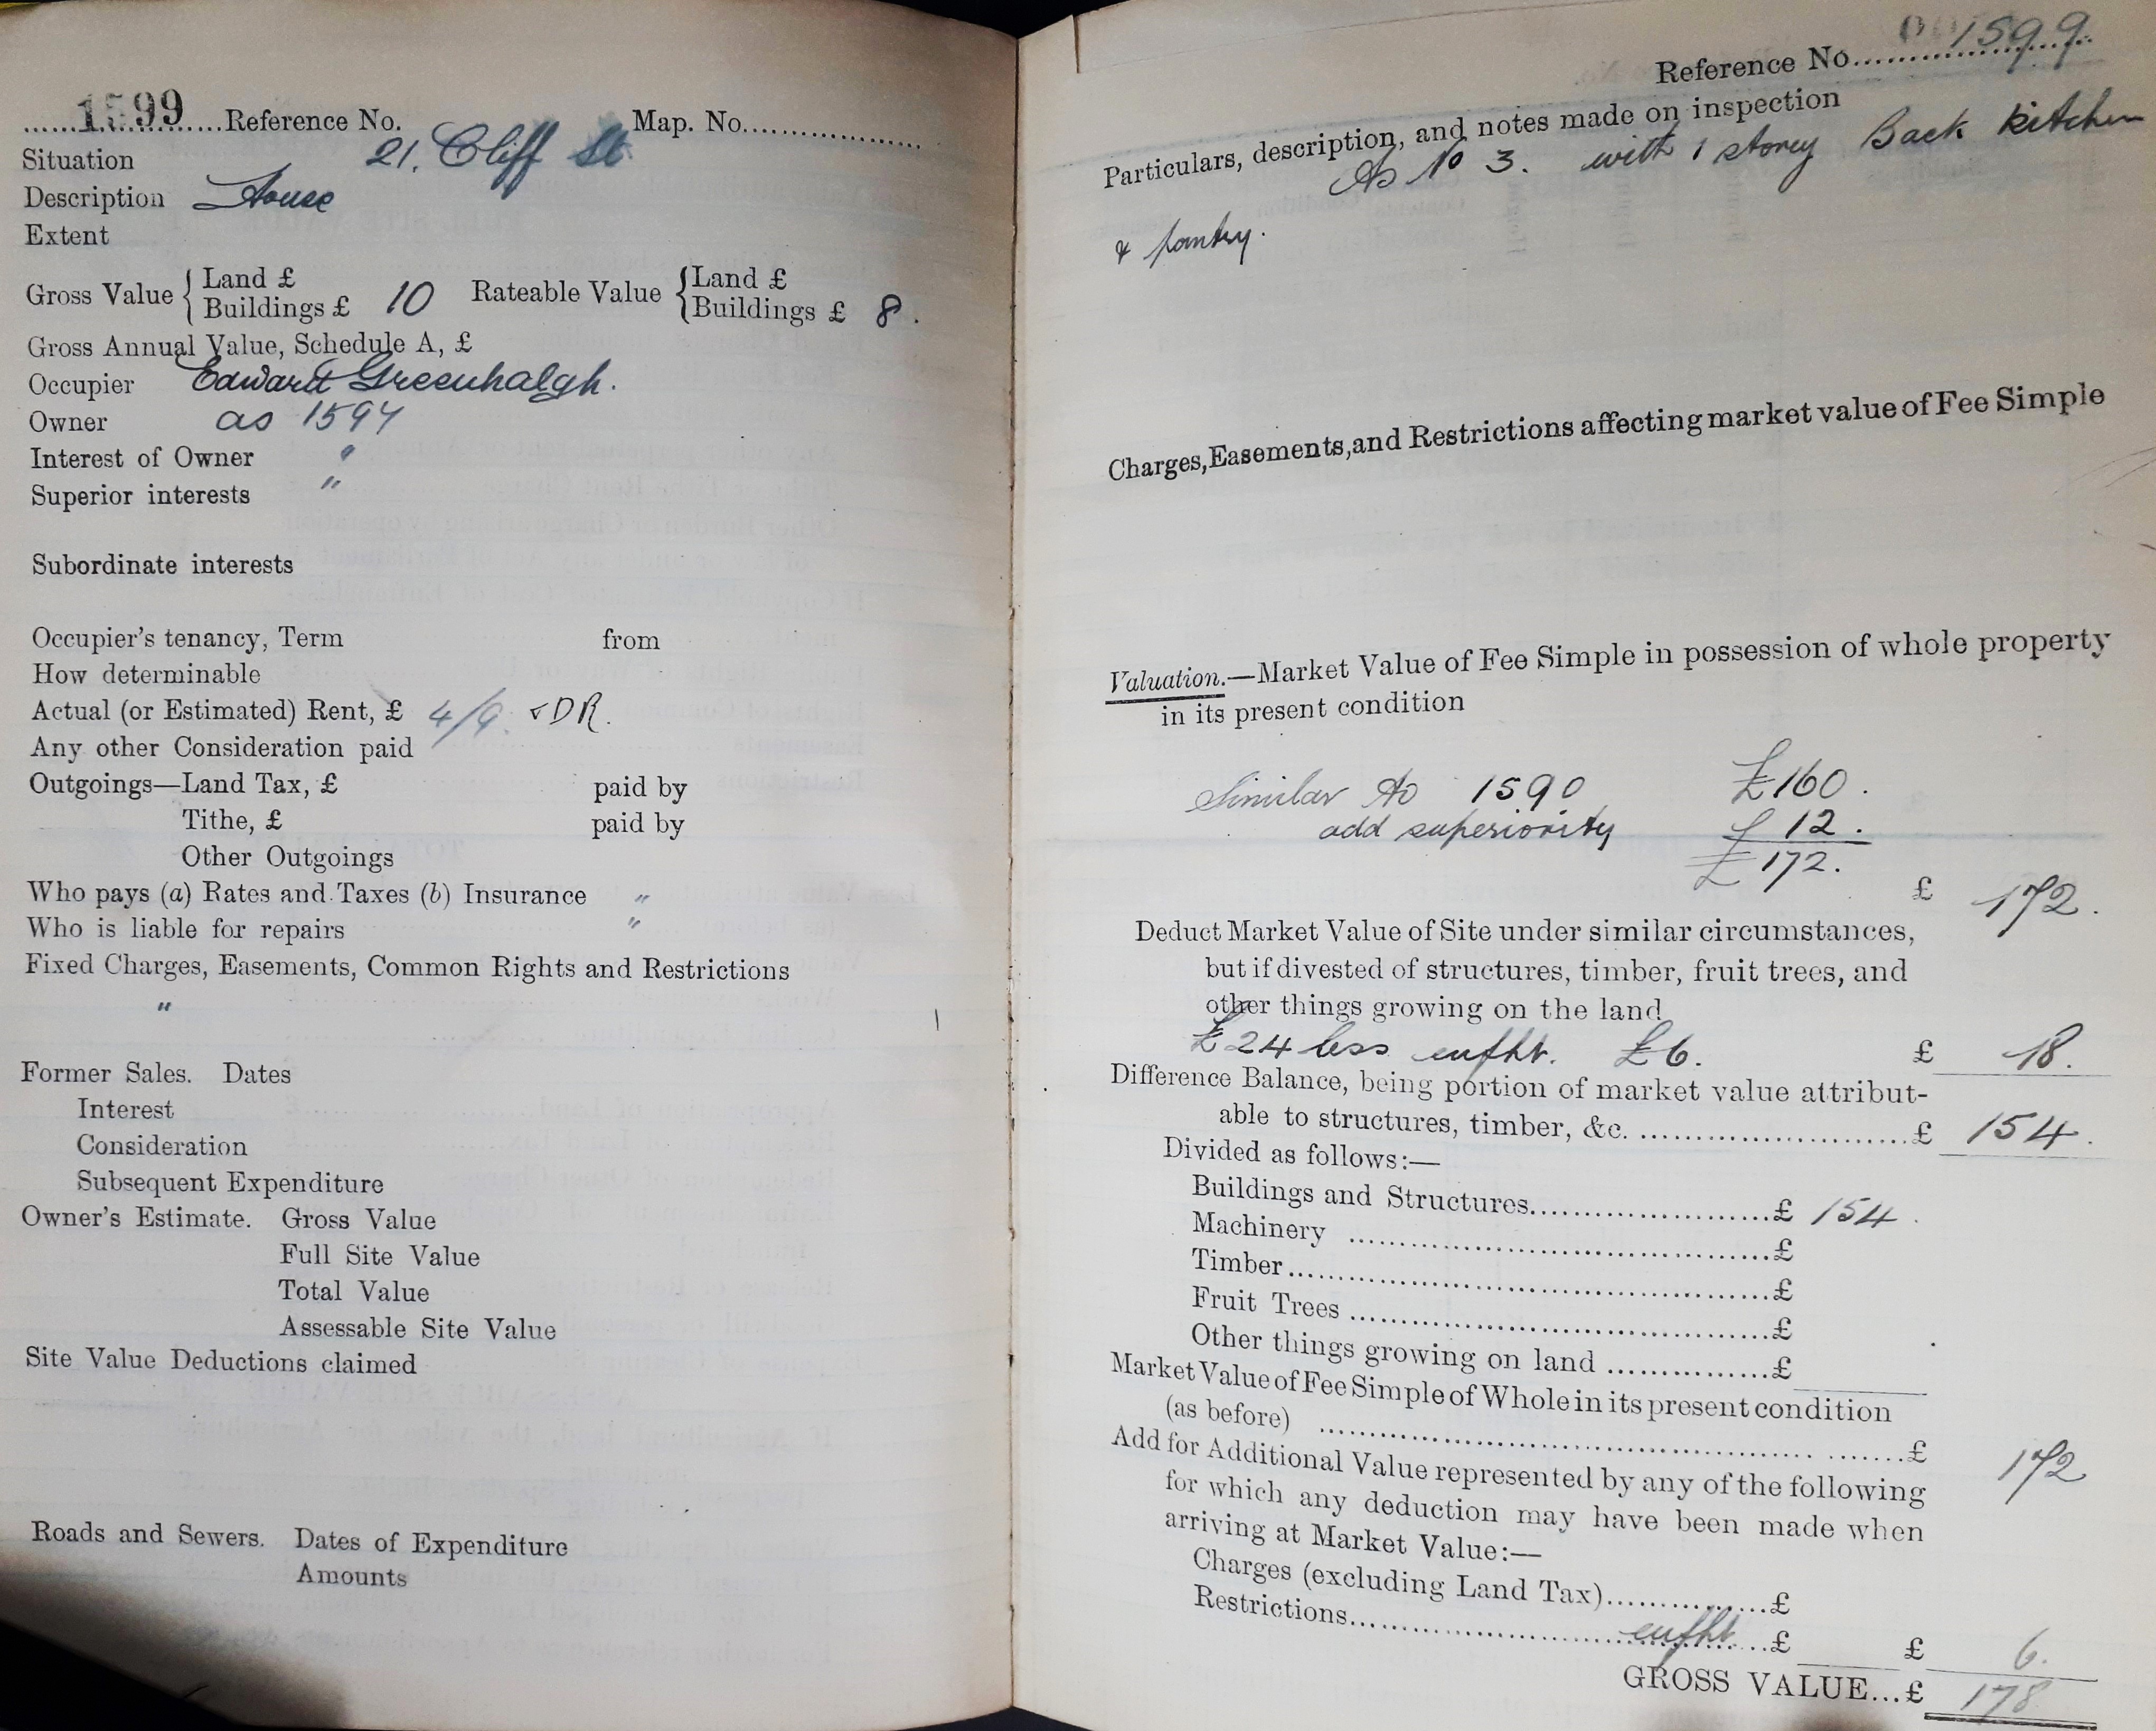 1599 Reference No. Map. No.
Situation 21, Cliff St
Description House
Extent
Gross Value { Land £ Rateable Value { Land £
Buildings £ 10 Buildings £ 8.
Gross Annual Value, Schedule A, £
Occupier Edward Greenhalgh.
Owner as 1594
Interest of Owner "
Superior interests "
Subordinate interests
Occupier's tenancy, Term from
How determinable
Actual (or Estimated) Rent, £ 4/9. DR.
Any other Consideration paid
Outgoings—Land Tax, £ paid by
Tithe, £ paid by
Other Outgoings
Who pays (a) Rates and Taxes (b) Insurance "
Who is liable for repairs "
Fixed Charges, Easements, Common Rights and Restrictions
"
Former Sales. Dates
Interest
Consideration
Subsequent Expenditure
Owner's Estimate. Gross Value
Full Site Value
Total Value
Assessable Site Value
Site Value Deductions claimed
Roads and Sewers. Dates of Expenditure
Amounts
Reference No. 1599
Particulars, description, and notes made on inspection
As No 3. with 1 storey Back kitchen
& pantry.
Charges, Easements, and Restrictions affecting market value of Fee Simple
Valuation.—Market Value of Fee Simple in possession of whole property
in its present condition
Similar to 1590 £160.
add superiority £12.
£172.
£ 172.
Deduct Market Value of Site under similar circumstances,
but if divested of structures, timber, fruit trees, and
other things growing on the land
£24 less enfht. £6. £ 18.
Difference Balance, being portion of market value attribut-
able to structures, timber, &c. £ 154.
Divided as follows:—
Buildings and Structures £ 154.
Machinery £
Timber £
Fruit Trees £
Other things growing on land £
Market Value of Fee Simple of Whole in its present condition
(as before) £ 172
Add for Additional Value represented by any of the following
for which any deduction may have been made when
arriving at Market Value:—
Charges (excluding Land Tax) £
Restrictions enfht £ £ 6.
GROSS VALUE...£ 178